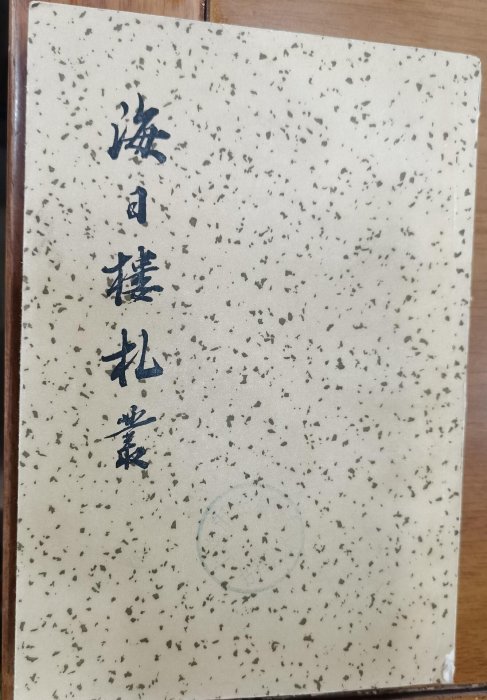 海日楼札叢